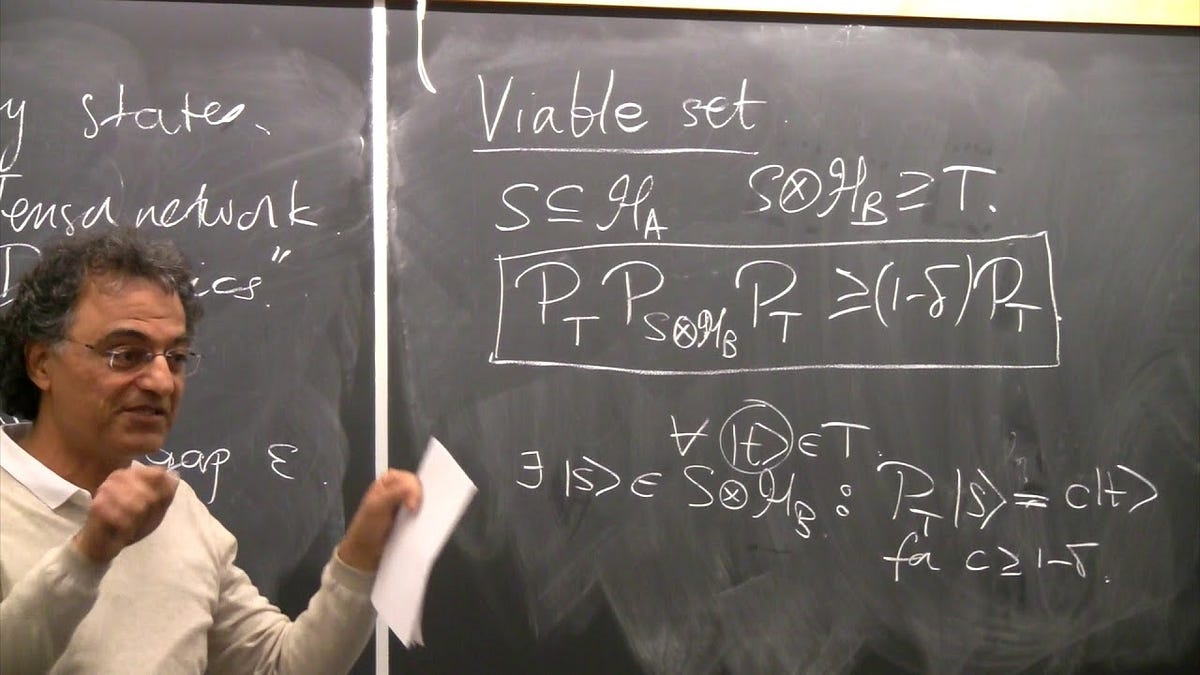 y states.
Tensor network
ics."
gap ε.
Viable set.
S ⊆ ℋ_A S⊗ℋ_B ≥ T.
P_T P_{S⊗ℋ_B} P_T ≥ (1-δ)P_T
∀ |t⟩ ∈ T.
∃ |s⟩ ∈ S⊗ℋ_B : P_T |s⟩ = c|t⟩
for c ≥ 1-δ.